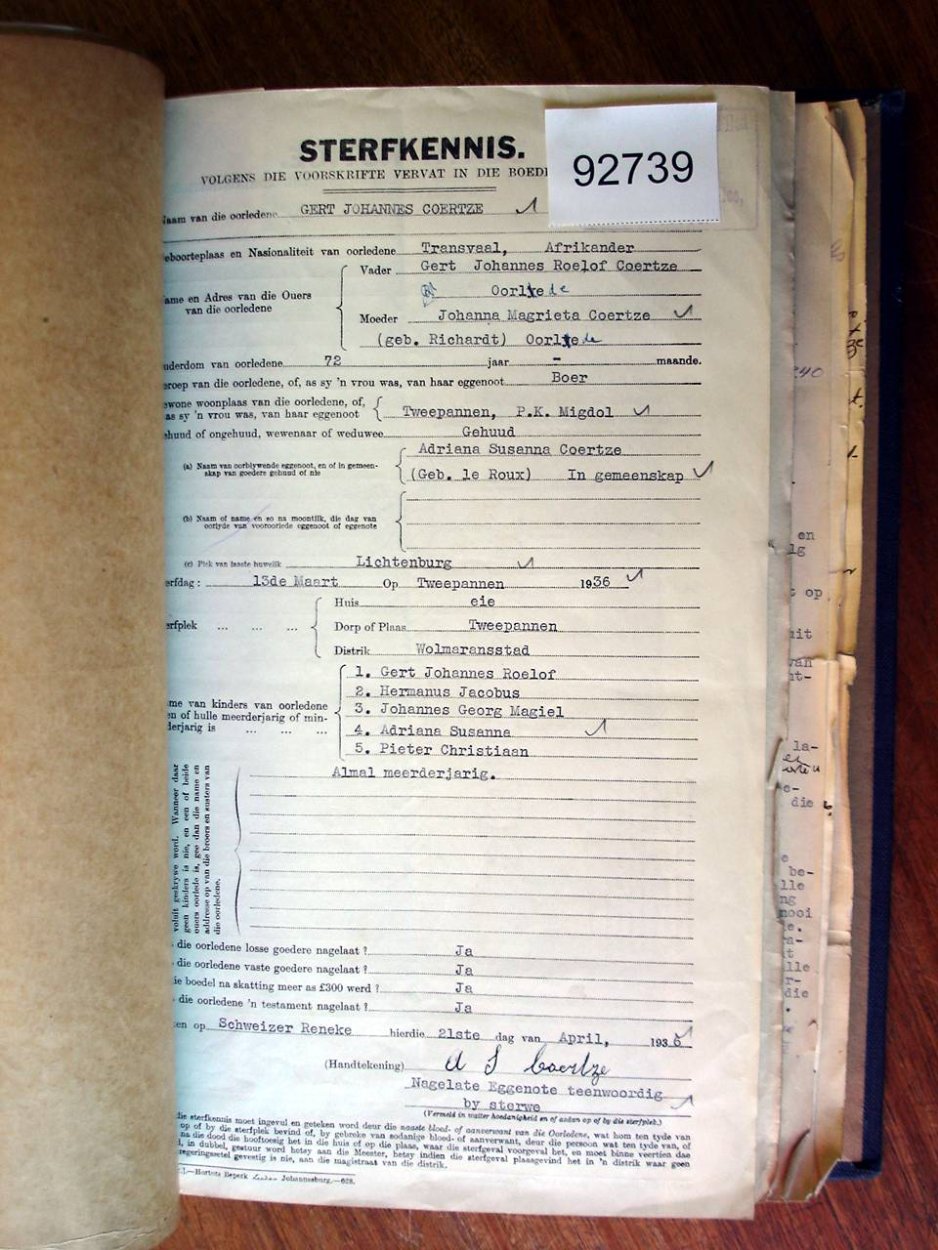 STERFKENNIS.
92739
VOLGENS DIE VOORSKRIFTE VERVAT IN DIE BOED
Naam van die oorledene GERT JOHANNES COERTZE
eboorteplaas en Nasionaliteit van oorledene Transvaal, Afrikander
ame en Adres van die Ouers van die oorledene
Vader Gert Johannes Roelof Coertze
Oorlede
Moeder Johanna Magrieta Coertze
(geb. Richardt) Oorlede
uderdom van oorledene 72 jaar - maande.
eroep van die oorledene, of, as sy 'n vrou was, van haar eggenoot Boer
ewone woonplaas van die oorledene, of, as sy 'n vrou was, van haar eggenoot Tweepannen, P.K. Migdol
ehuud of ongehuud, wewenaar of weduwee Gehuud
(a) Naam van oorblywende eggenoot, en of in gemeenskap van goedere gehuud of nie
Adriana Susanna Coertze
(Geb. le Roux) In gemeenskap
(b) Naam of name en so na moontlik, die dag van oorlyde van vooroorlede eggenoot of eggenote
(c) Plek van laaste huwelik Lichtenburg
erfdag: 13de Maart Op Tweepannen 1936
erfplek ... ... ...
Huis eie
Dorp of Plaas Tweepannen
Distrik Wolmaransstad
me van kinders van oorledene
en of hulle meerderjarig of min-
derjarig is ... ... ...
1. Gert Johannes Roelof
2. Hermanus Jacobus
3. Johannes Georg Magiel
4. Adriana Susanna
5. Pieter Christiaan
Almal meerderjarig.
voluit geskrywe word. Wanneer daar
geen kinders is nie, en een of beide
ouers oorlede is, gee dan die name en
addresse op van die broers en susters van
die oorledene.
die oorledene losse goedere nagelaat? Ja
die oorledene vaste goedere nagelaat? Ja
ie boedel na skatting meer as £300 werd? Ja
die oorledene 'n testament nagelaat? Ja
en op Schweizer Reneke hierdie 21ste dag van April, 1936
(Handtekening) A S Coertze
Nagelate Eggenote teenwoordig
by sterwe
(Vermeld in watter hoedanigheid en of andan op of by die sterfplek.)
die sterfkennis moet ingevul en geteken word deur die naaste bloed- of aanverwant van die Oorledene, wat hom ten tyde van
op of by die sterfplek bevind of, by gebreke van sodanige bloed- of aanverwant, deur die persoon wat ten tyde van, of
na die dood die hooftoesig het in die huis of op die plaas, waar die sterfgeval voorgeval het, en moet binne veertien dae
, in dubbel, gestuur word hetsy aan die Meester, hetsy indien die sterfgeval plaasgevind het in 'n distrik waar geen
regeringsetel gevestig is nie, aan die magistraat van die distrik.
Hortors Beperk Johannesburg.—628.